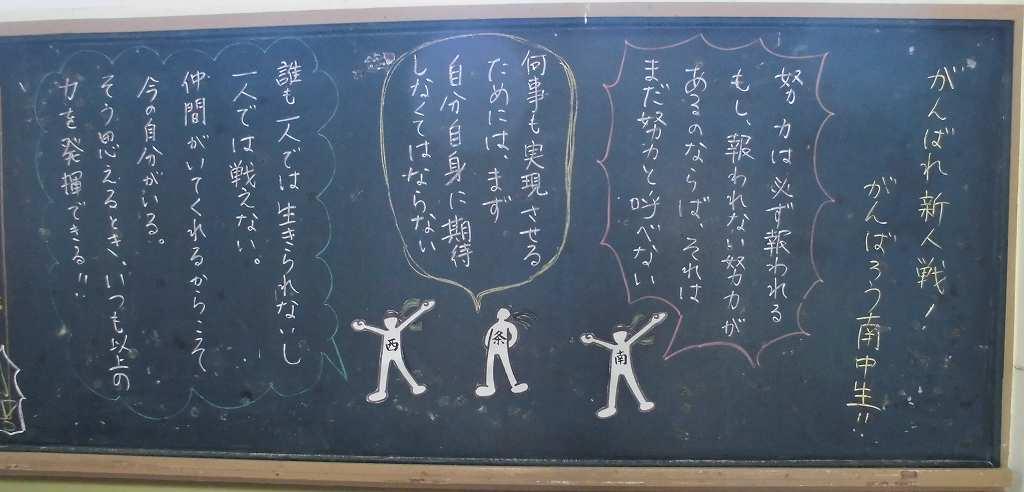 がんばれ新人戦！
がんばろう南中生!!
努力は必ず報われる
もし、報われない努力が
あるのならば、それは
まだ努力と呼べない
南
何事も実現させる
ためには、まず
自分自身に期待
しなくてはならない
条
誰も一人では生きられないし
一人では戦えない。
仲間がいてくれるからこそ
今の自分がいる。
そう思えるとき、いつも以上の
力を発揮できる!!
西